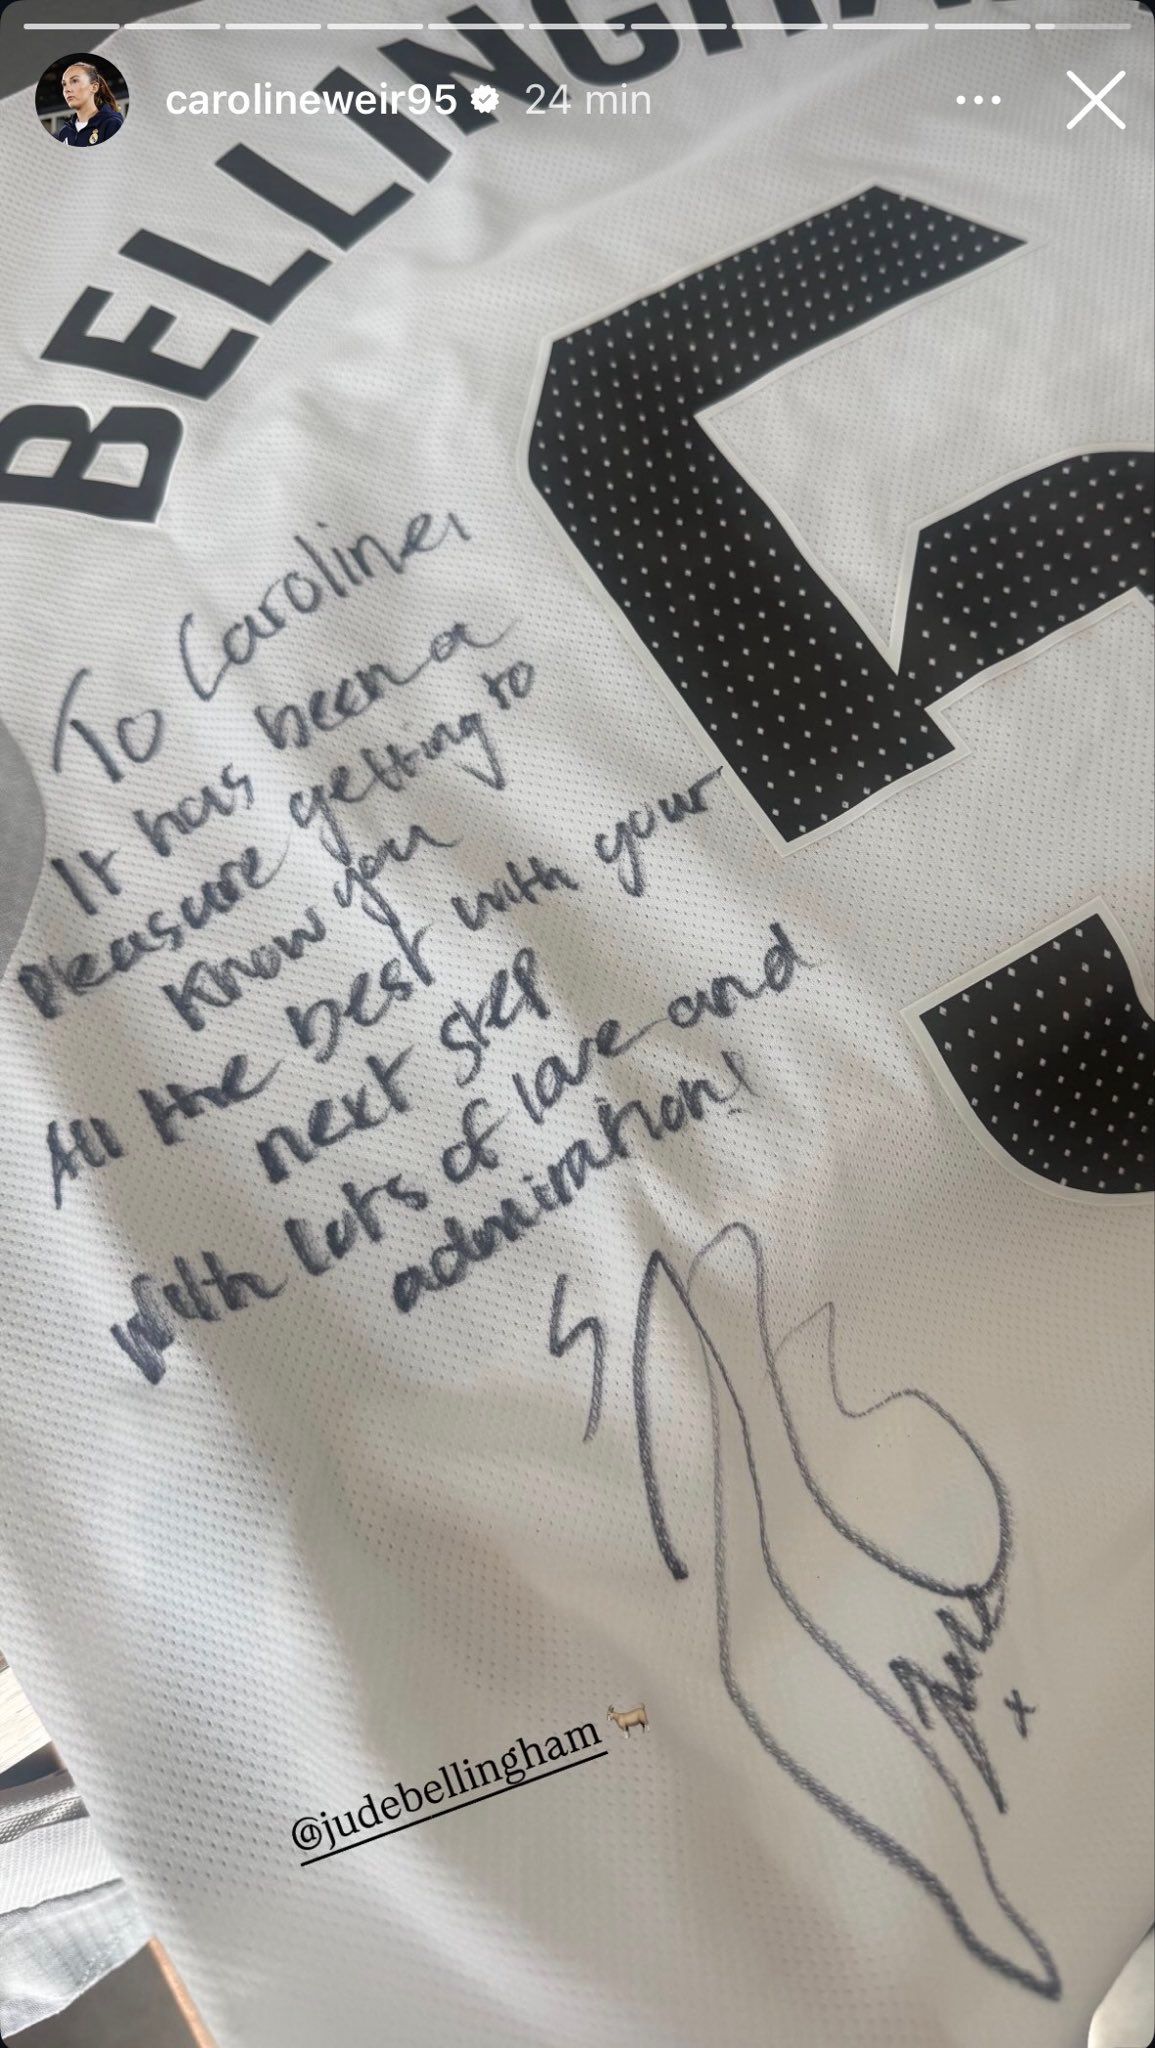 carolineweir95 24 min
BELLINGHA
5
To Caroline,
It has been a
pleasure getting to
know you
All the best with your
next step
With lots of love and
admiration!
5
Jude
x
@judebellingham 🐐